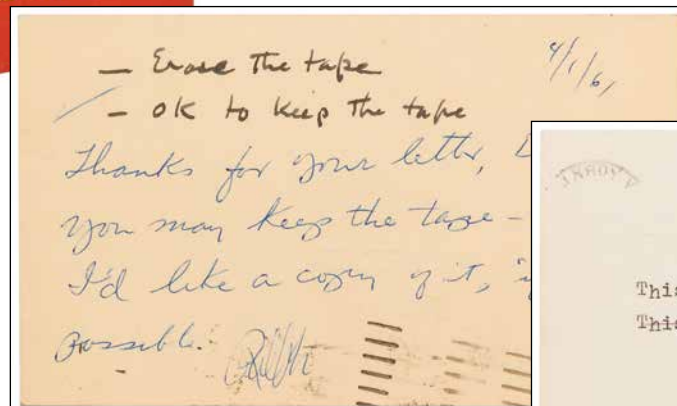 — Erase the tape
4/1/61
— OK to keep the tape
Thanks for your letter,
you may keep the tape —
I'd like a copy of it,
possible.
This
This